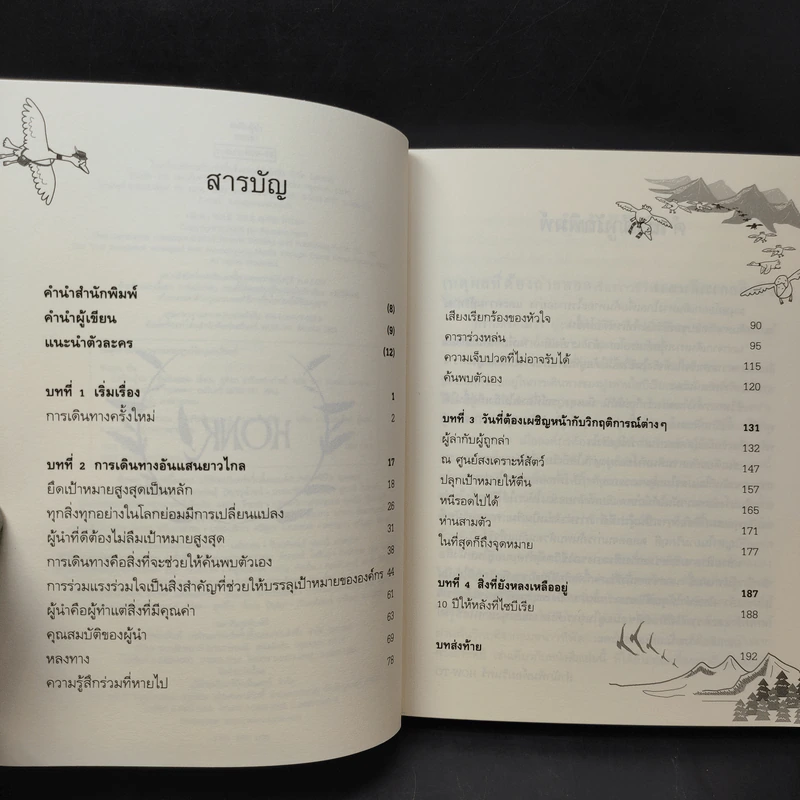 สารบัญ
คำนำสำนักพิมพ์ (8)
คำนำผู้เขียน (9)
แนะนำตัวละคร (12)
บทที่ 1 เริ่มเรื่อง 1
การเดินทางครั้งใหม่ 2
บทที่ 2 การเดินทางอันแสนยาวไกล 17
ยึดเป้าหมายสูงสุดเป็นหลัก 18
ทุกสิ่งทุกอย่างในโลกย่อมมีการเปลี่ยนแปลง 26
ผู้นำที่ดีต้องไม่ลืมเป้าหมายสูงสุด 31
การเดินทางคือสิ่งที่จะช่วยให้ค้นพบตัวเอง 38
การร่วมแรงร่วมใจเป็นสิ่งสำคัญที่ช่วยให้บรรลุเป้าหมายขององค์กร 44
ผู้นำคือผู้ทำแต่สิ่งที่มีคุณค่า 61
คุณสมบัติของผู้นำ 63
หลงทาง 69
ความรู้สึกร่วมที่หายไป 78
เสียงเรียกร้องของหัวใจ 90
คาราร่วงหล่น 95
ความเจ็บปวดที่ไม่อาจรับได้ 115
ค้นพบตัวเอง 120
บทที่ 3 วันที่ต้องเผชิญหน้ากับวิกฤติการณ์ต่างๆ 131
ผู้ล่ากับผู้ถูกล่า 132
ณ ศูนย์สงเคราะห์สัตว์ 147
ปลุกเป้าหมายให้ตื่น 157
หนีรอดไปได้ 165
ห่านสามตัว 171
ในที่สุดก็ถึงจุดหมาย 177
บทที่ 4 สิ่งที่ยังหลงเหลืออยู่ 187
10 ปีให้หลังที่ไซบีเรีย 188
บทส่งท้าย 192
HONK!